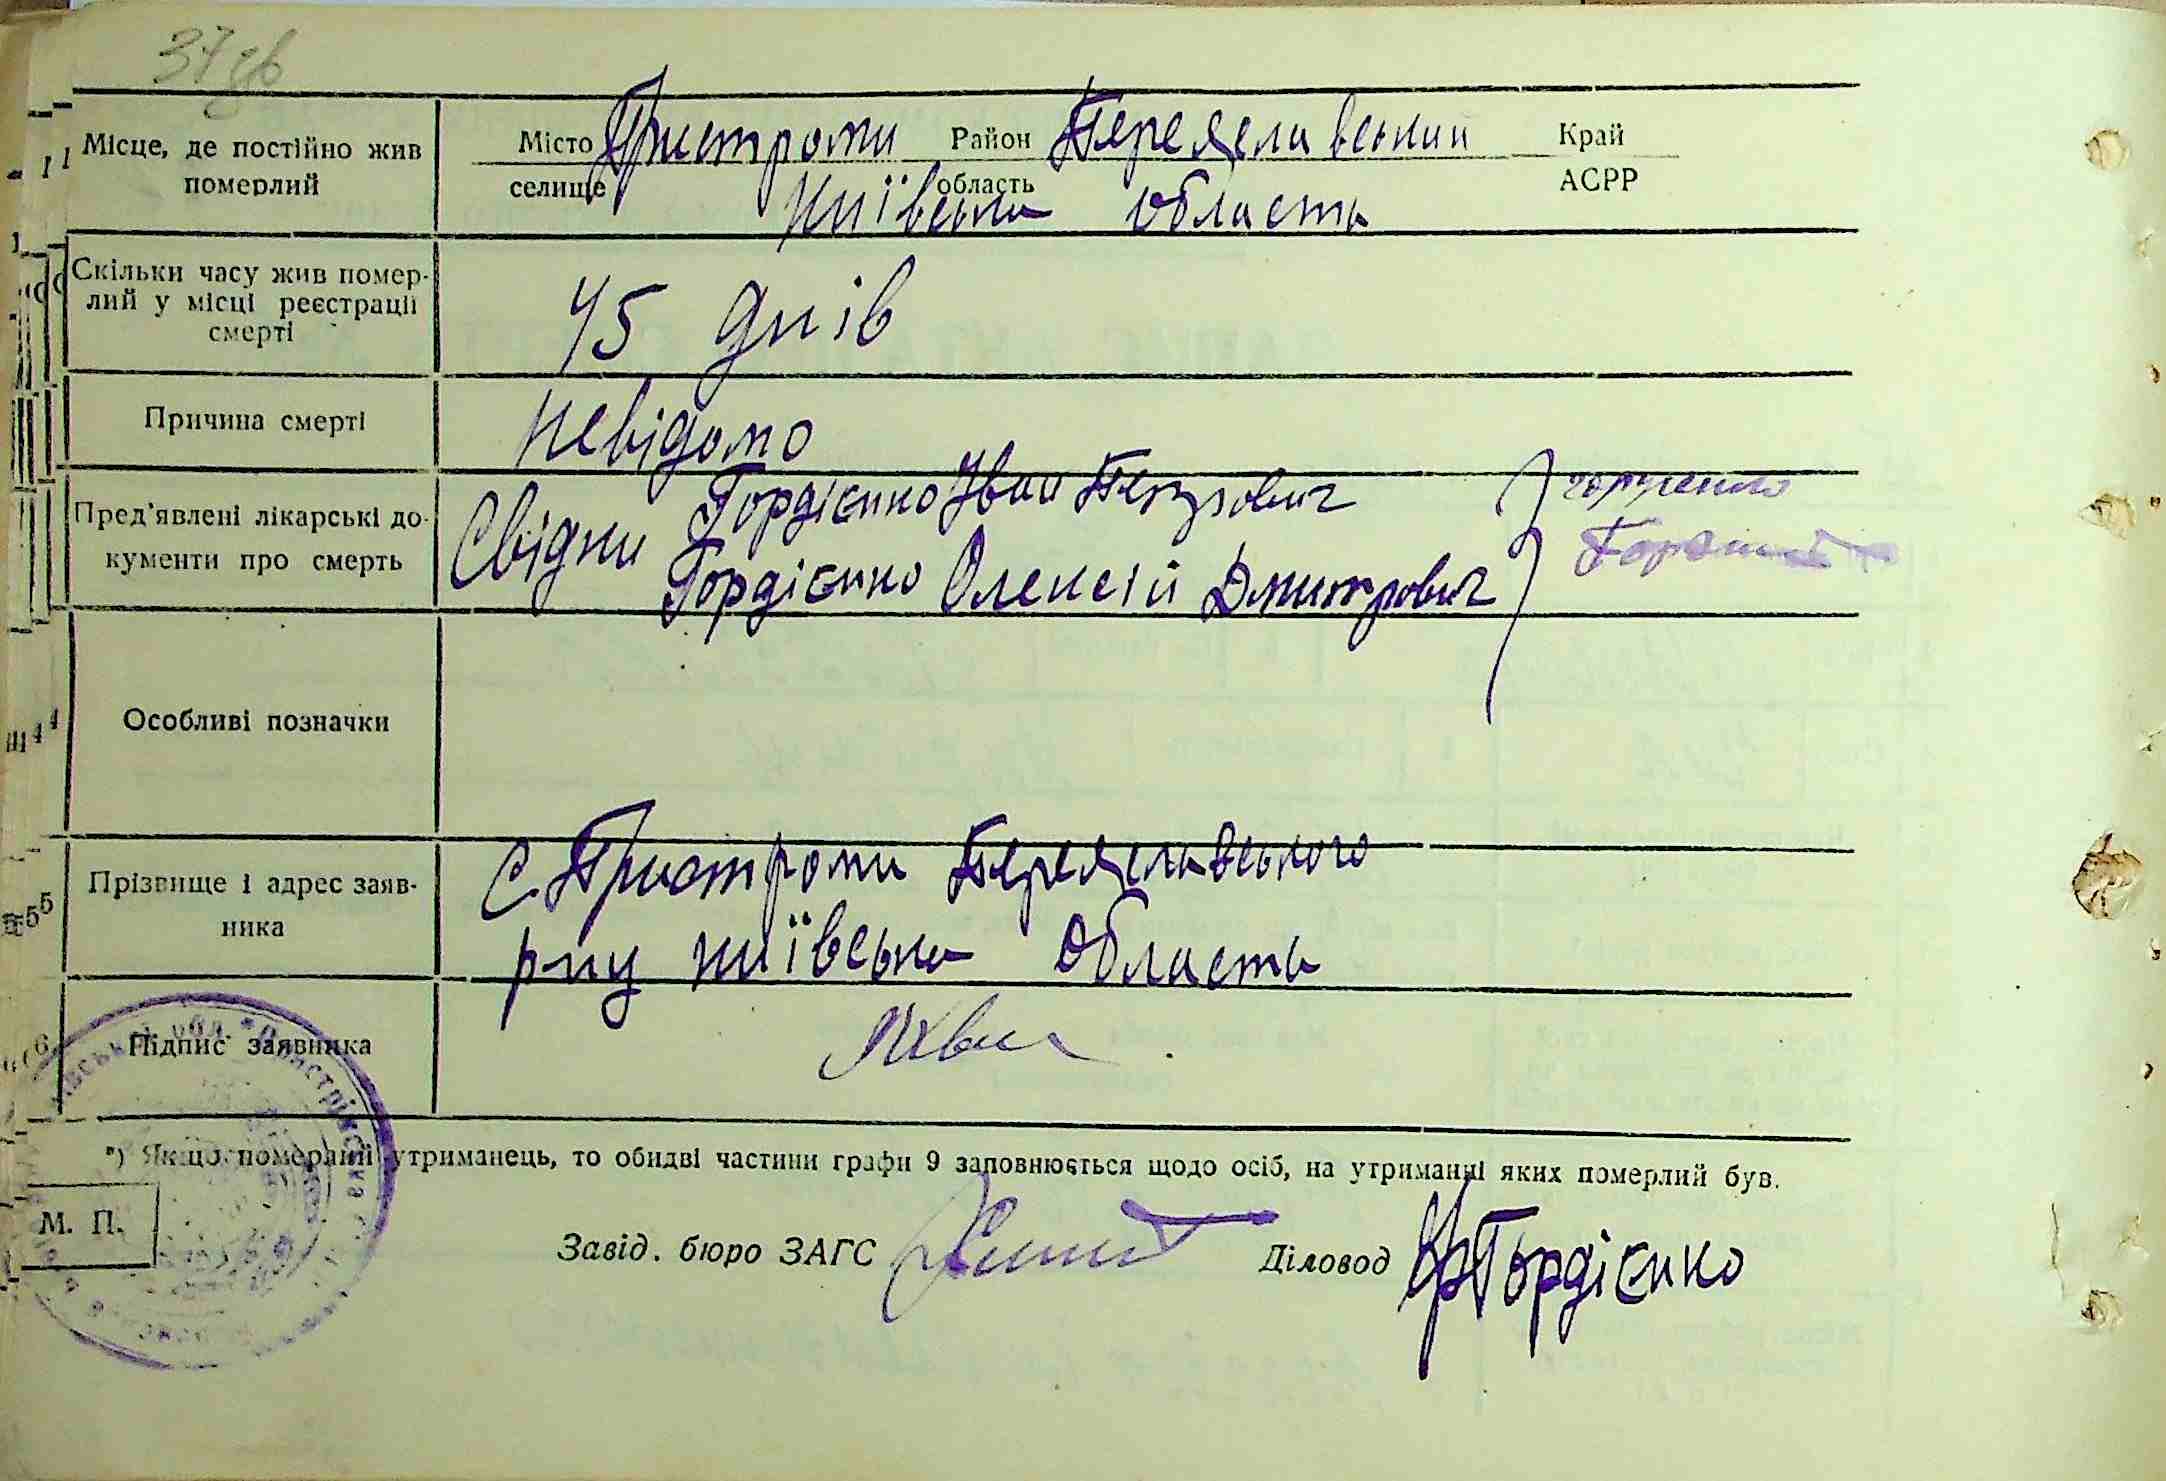 37 зв
Місце, де постійно жив померлий
Місто Пристроми Район Переяславський Край
селище область АСРР
Київська область
Скільки часу жив помер-
лий у місці реєстрації
смерті
45 днів
Причина смерті
невідомо
Пред'явлені лікарські до-
кументи про смерть
Свідки Гордієнко Іван Петрович
Гордієнко Олексій Дмитрович
Особливі позначки
Прізвище і адрес заяв-
ника
с Пристроми Переяславського
р-ну Київська область
Підпис заявника
*) Якщо померлий утриманець, то обидві частини графи 9 заповнюється щодо осіб, на утриманні яких померлий був.
М. П.
Завід. бюро ЗАГС
Діловод Гордієнко